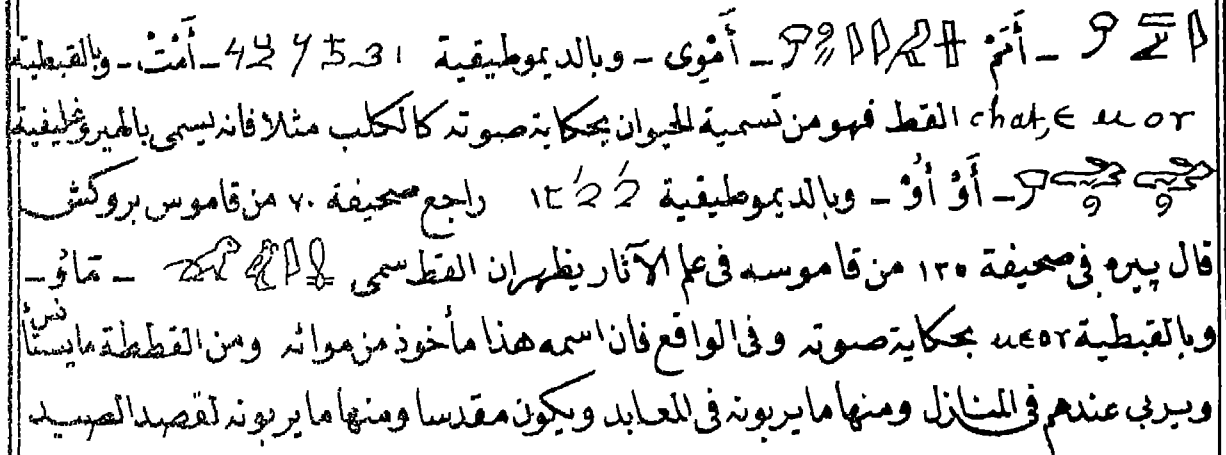 ـ أَتَمْ ـ أَمْوِى ـ وبالديموطيقية ـ أَمْتْ ـ وبالقبطية
chat, ⲉⲙⲟⲩ القط فهو من تسمية الحيوان بحكاية صوته كالكلب مثلا فانه يسمى بالهيروغليفية
ـ أَوْ أَوْ ـ وبالديموطيقية راجع صحيفة ٧٠ من قاموس بروكش
قال پيره فى صحيفة ١٣٥ من قاموسه فى علم الآثار يظهر ان القط سمى ـ مَاؤُ ـ
وبالقبطية ⲙⲉⲟⲩ بحكاية صوته وفى الواقع فان اسمه هذا مأخوذ من موائه ومن القططة ما يستأنس
ويربى عندهم فى المنازل ومنها ما يربونه فى المعابد ويكون مقدسا ومنها ما يربونه لقصد الصيد